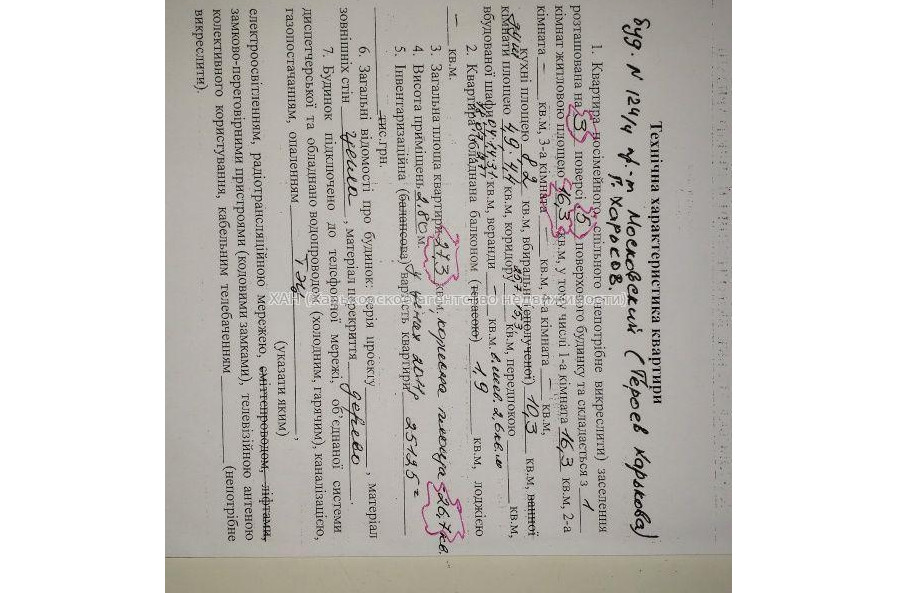 Технічна характеристика квартири
буд. N 124/4 пр.-т Московский (Героев Харькова)
г. Харьков.
1. Квартира посімейного, спільного (непотрібне викреслити) заселення
розташована на 3 поверсі 5 поверхового будинку та складається з 1
кімнат житловою площею 16,3 кв.м, у тому числі 1-а кімната 16,3 кв.м, 2-а
кімната – кв.м, 3-а кімната – кв.м, -а кімната – кв.м,
кухні площею 8,2 кв.м, вбиральні (сполученої) кв.м, ванної
кімнати площею кв.м, коридору кв.м, передпокою кв.м,
вбудованої шафи кв.м, веранди – кв.м.
2. Квартира обладнана балконом (терасою) 1,9 кв.м, лоджією
– кв.м.
3. Загальна площа квартири 27,3 кв.м, корисна площа – 26,7 кв.
4. Висота приміщень 2.80 м.
5. Інвентаризаційна (балансова) вартість квартири 25125 =
тис.грн.
6. Загальні відомості про будинок: серія проекту , матеріал
зовнішніх стін цегла , матеріал перекриття дерево .
7. Будинок підключено до телефонної мережі, об'єднаної системи
диспетчерської та обладнано водопроводом (холодним, гарячим), каналізацією,
газопостачанням, опаленням ТЭЦ ,
(указати яким)
електроосвітленням, радіотрансляційною мережею, сміттєпроводом, ліфтами,
замково-переговірними пристроями (кодовими замками), телевізійною антеною
колективного користування, кабельним телебаченням (непотрібне
викреслити).
ХАН (Харьковское агентство недвижимости)